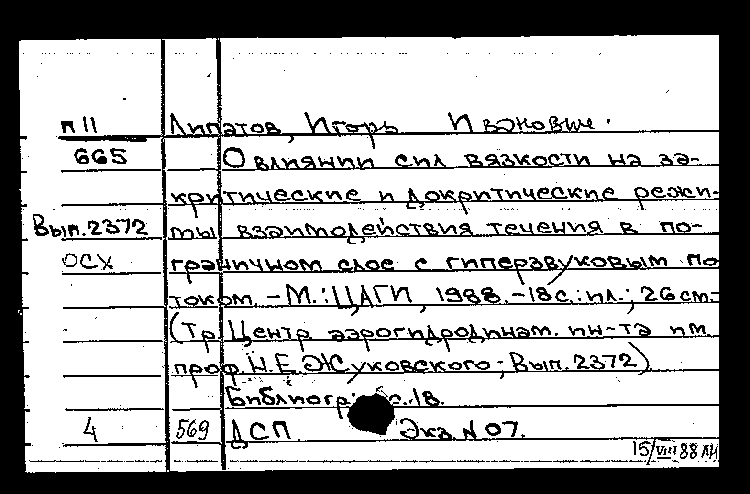 П11 Липатов, Игорь Иванович.
665 О влиянии сил вязкости на за-
критические и докритические режи-
Вып.2372 мы взаимодействия течения в по-
ОСХ граничном слое с гиперзвуковым по
током. - М.: ЦАГИ, 1988. - 18 с.: ил.; 26 см. -
(Тр/Центр аэрогидродинам. ин-та им.
проф. Н.Е. Жуковского; Вып. 2372)
Библиогр. с. 18.
4 569 ДСП Экз. N 07.
15/VIII 88 ЛИ